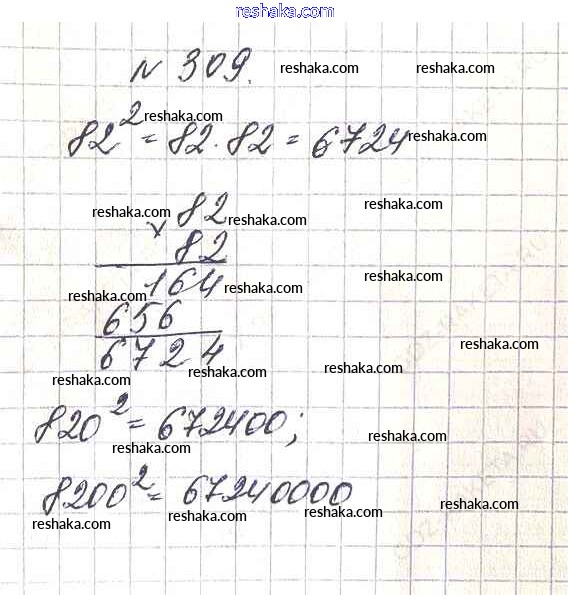 reshaka.com
N 309. reshaka.com
reshaka.com
82² = 82 · 82 = 6724 reshaka.com
reshaka.com × 82 reshaka.com reshaka.com
82
164 reshaka.com reshaka.com
reshaka.com
656
6724 reshaka.com reshaka.com reshaka.com
reshaka.com
820² = 672400; reshaka.com
reshaka.com
8200² = 67240000 reshaka.com
reshaka.com reshaka.com reshaka.com